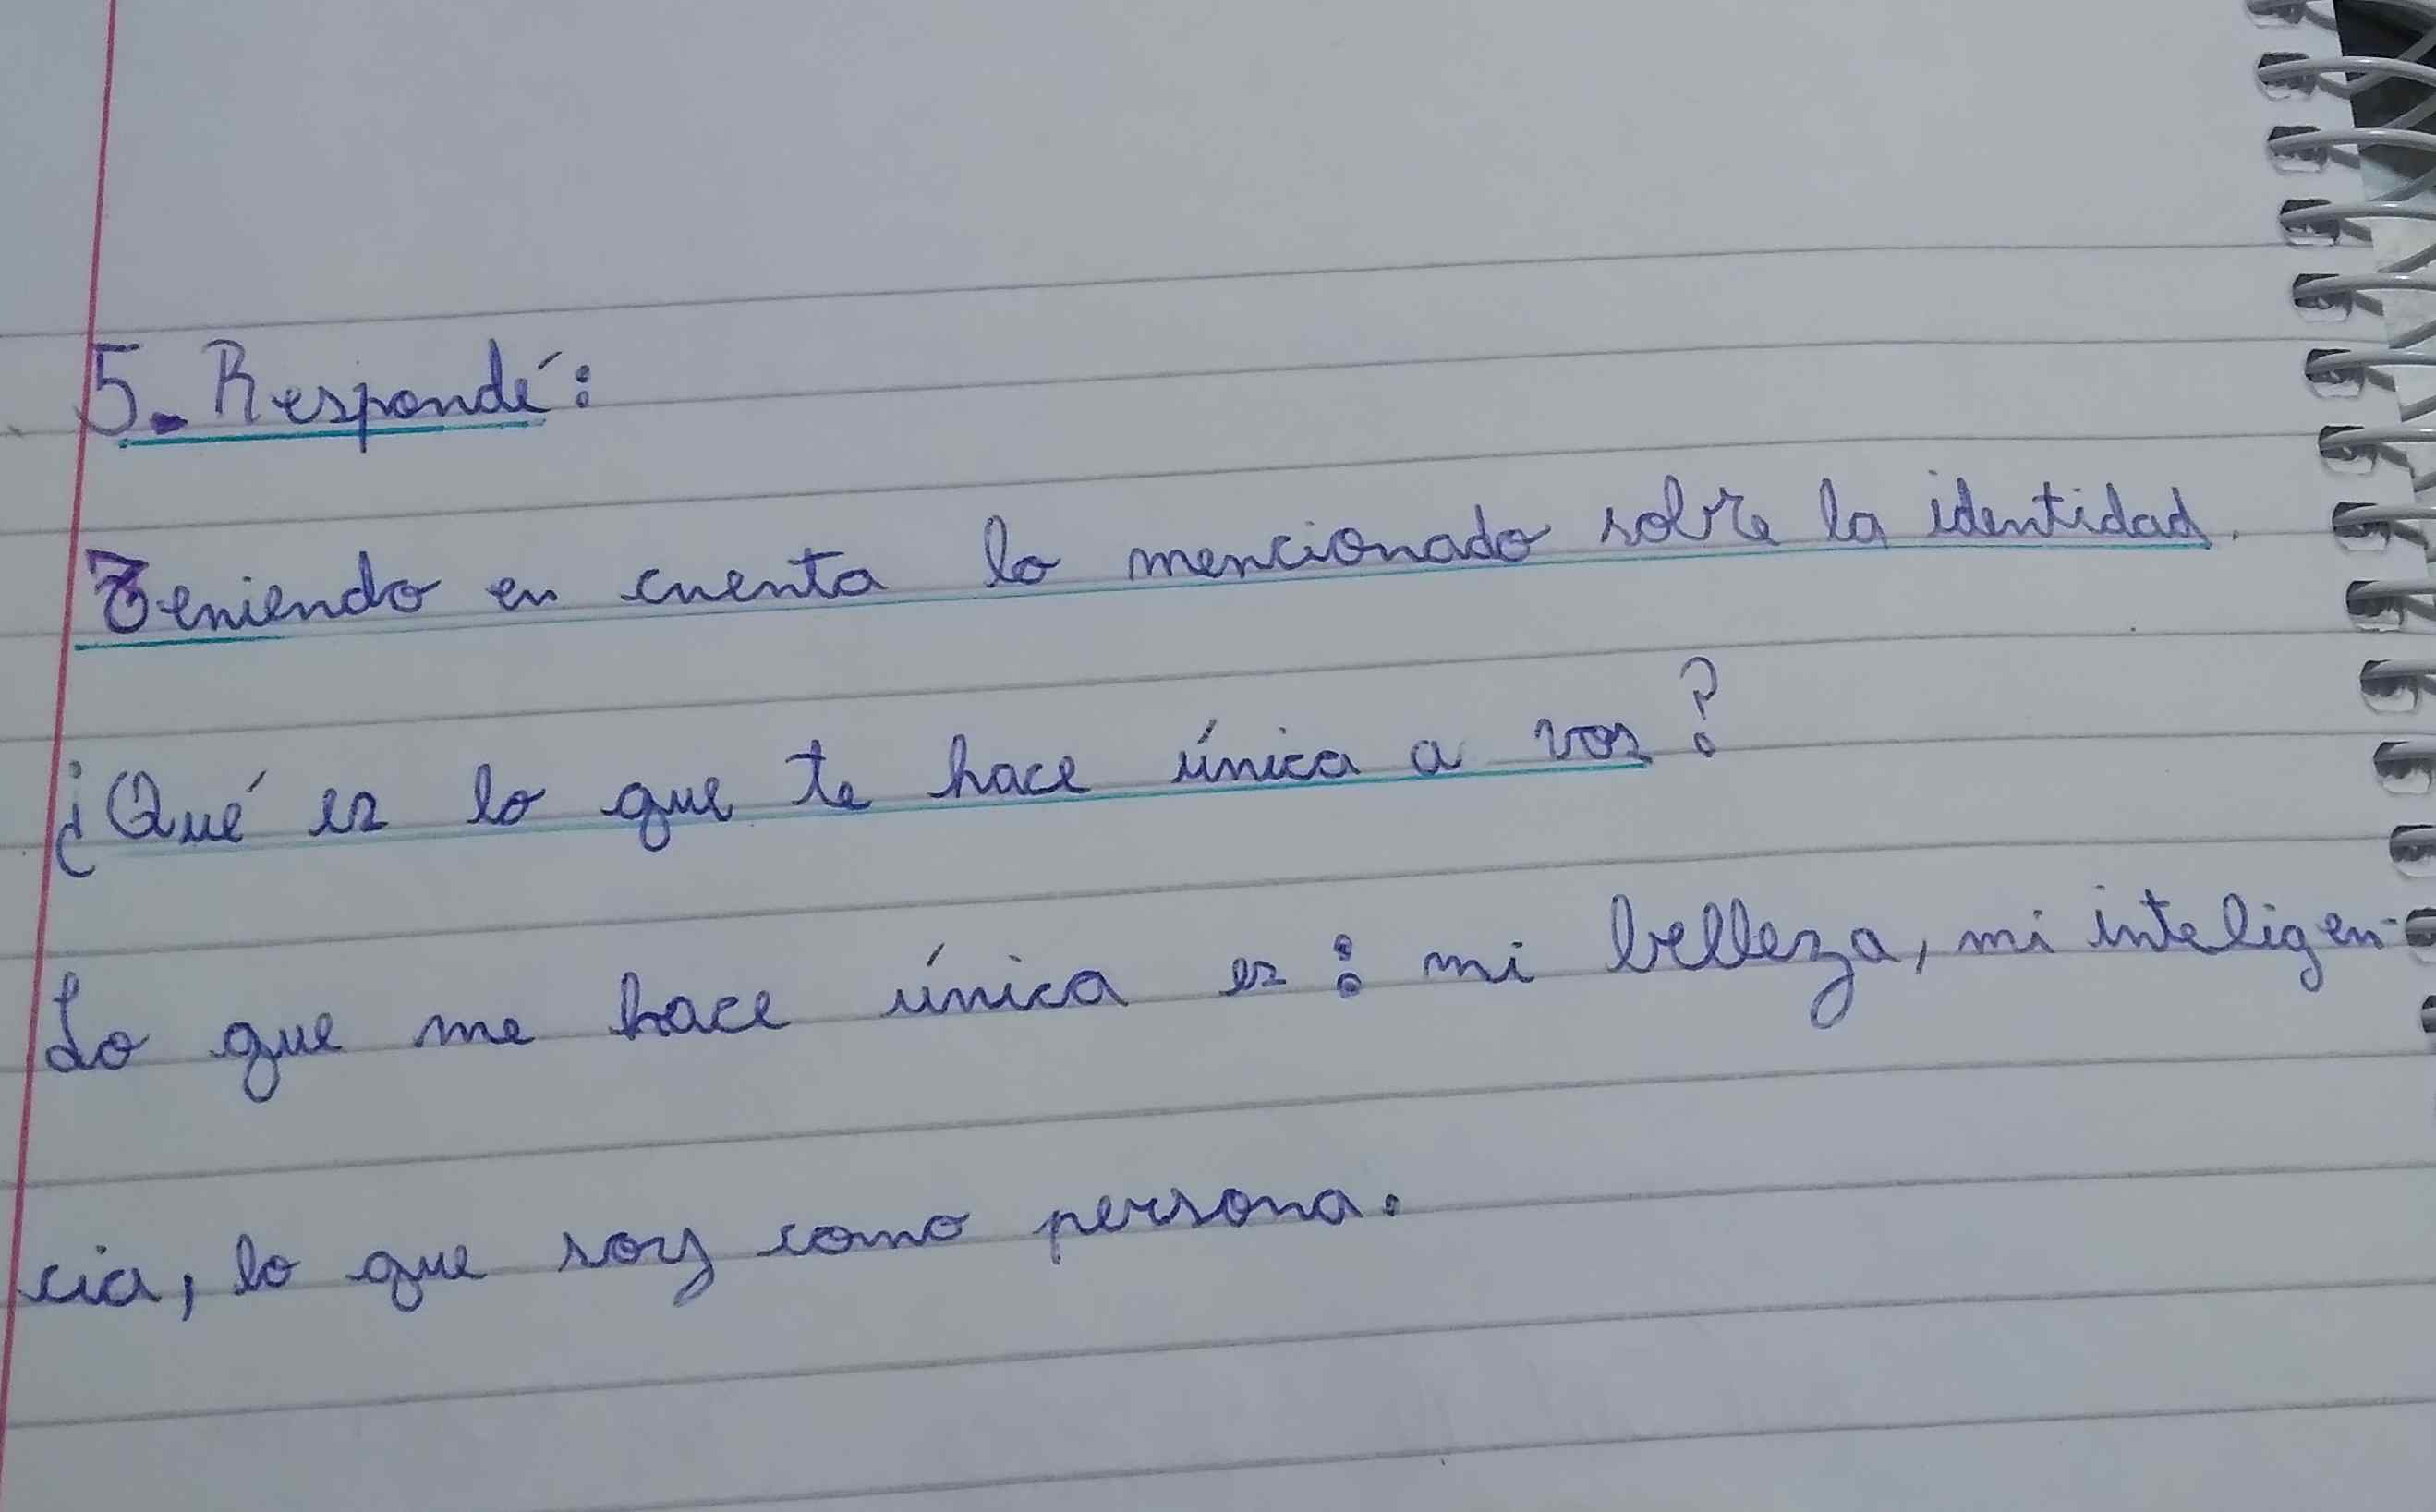 5. Respondé:
Teniendo en cuenta lo mencionado sobre la identidad.
¿Qué es lo que te hace única a vos?
Lo que me hace única es: mi belleza, mi inteligen-
cia, lo que soy como persona.